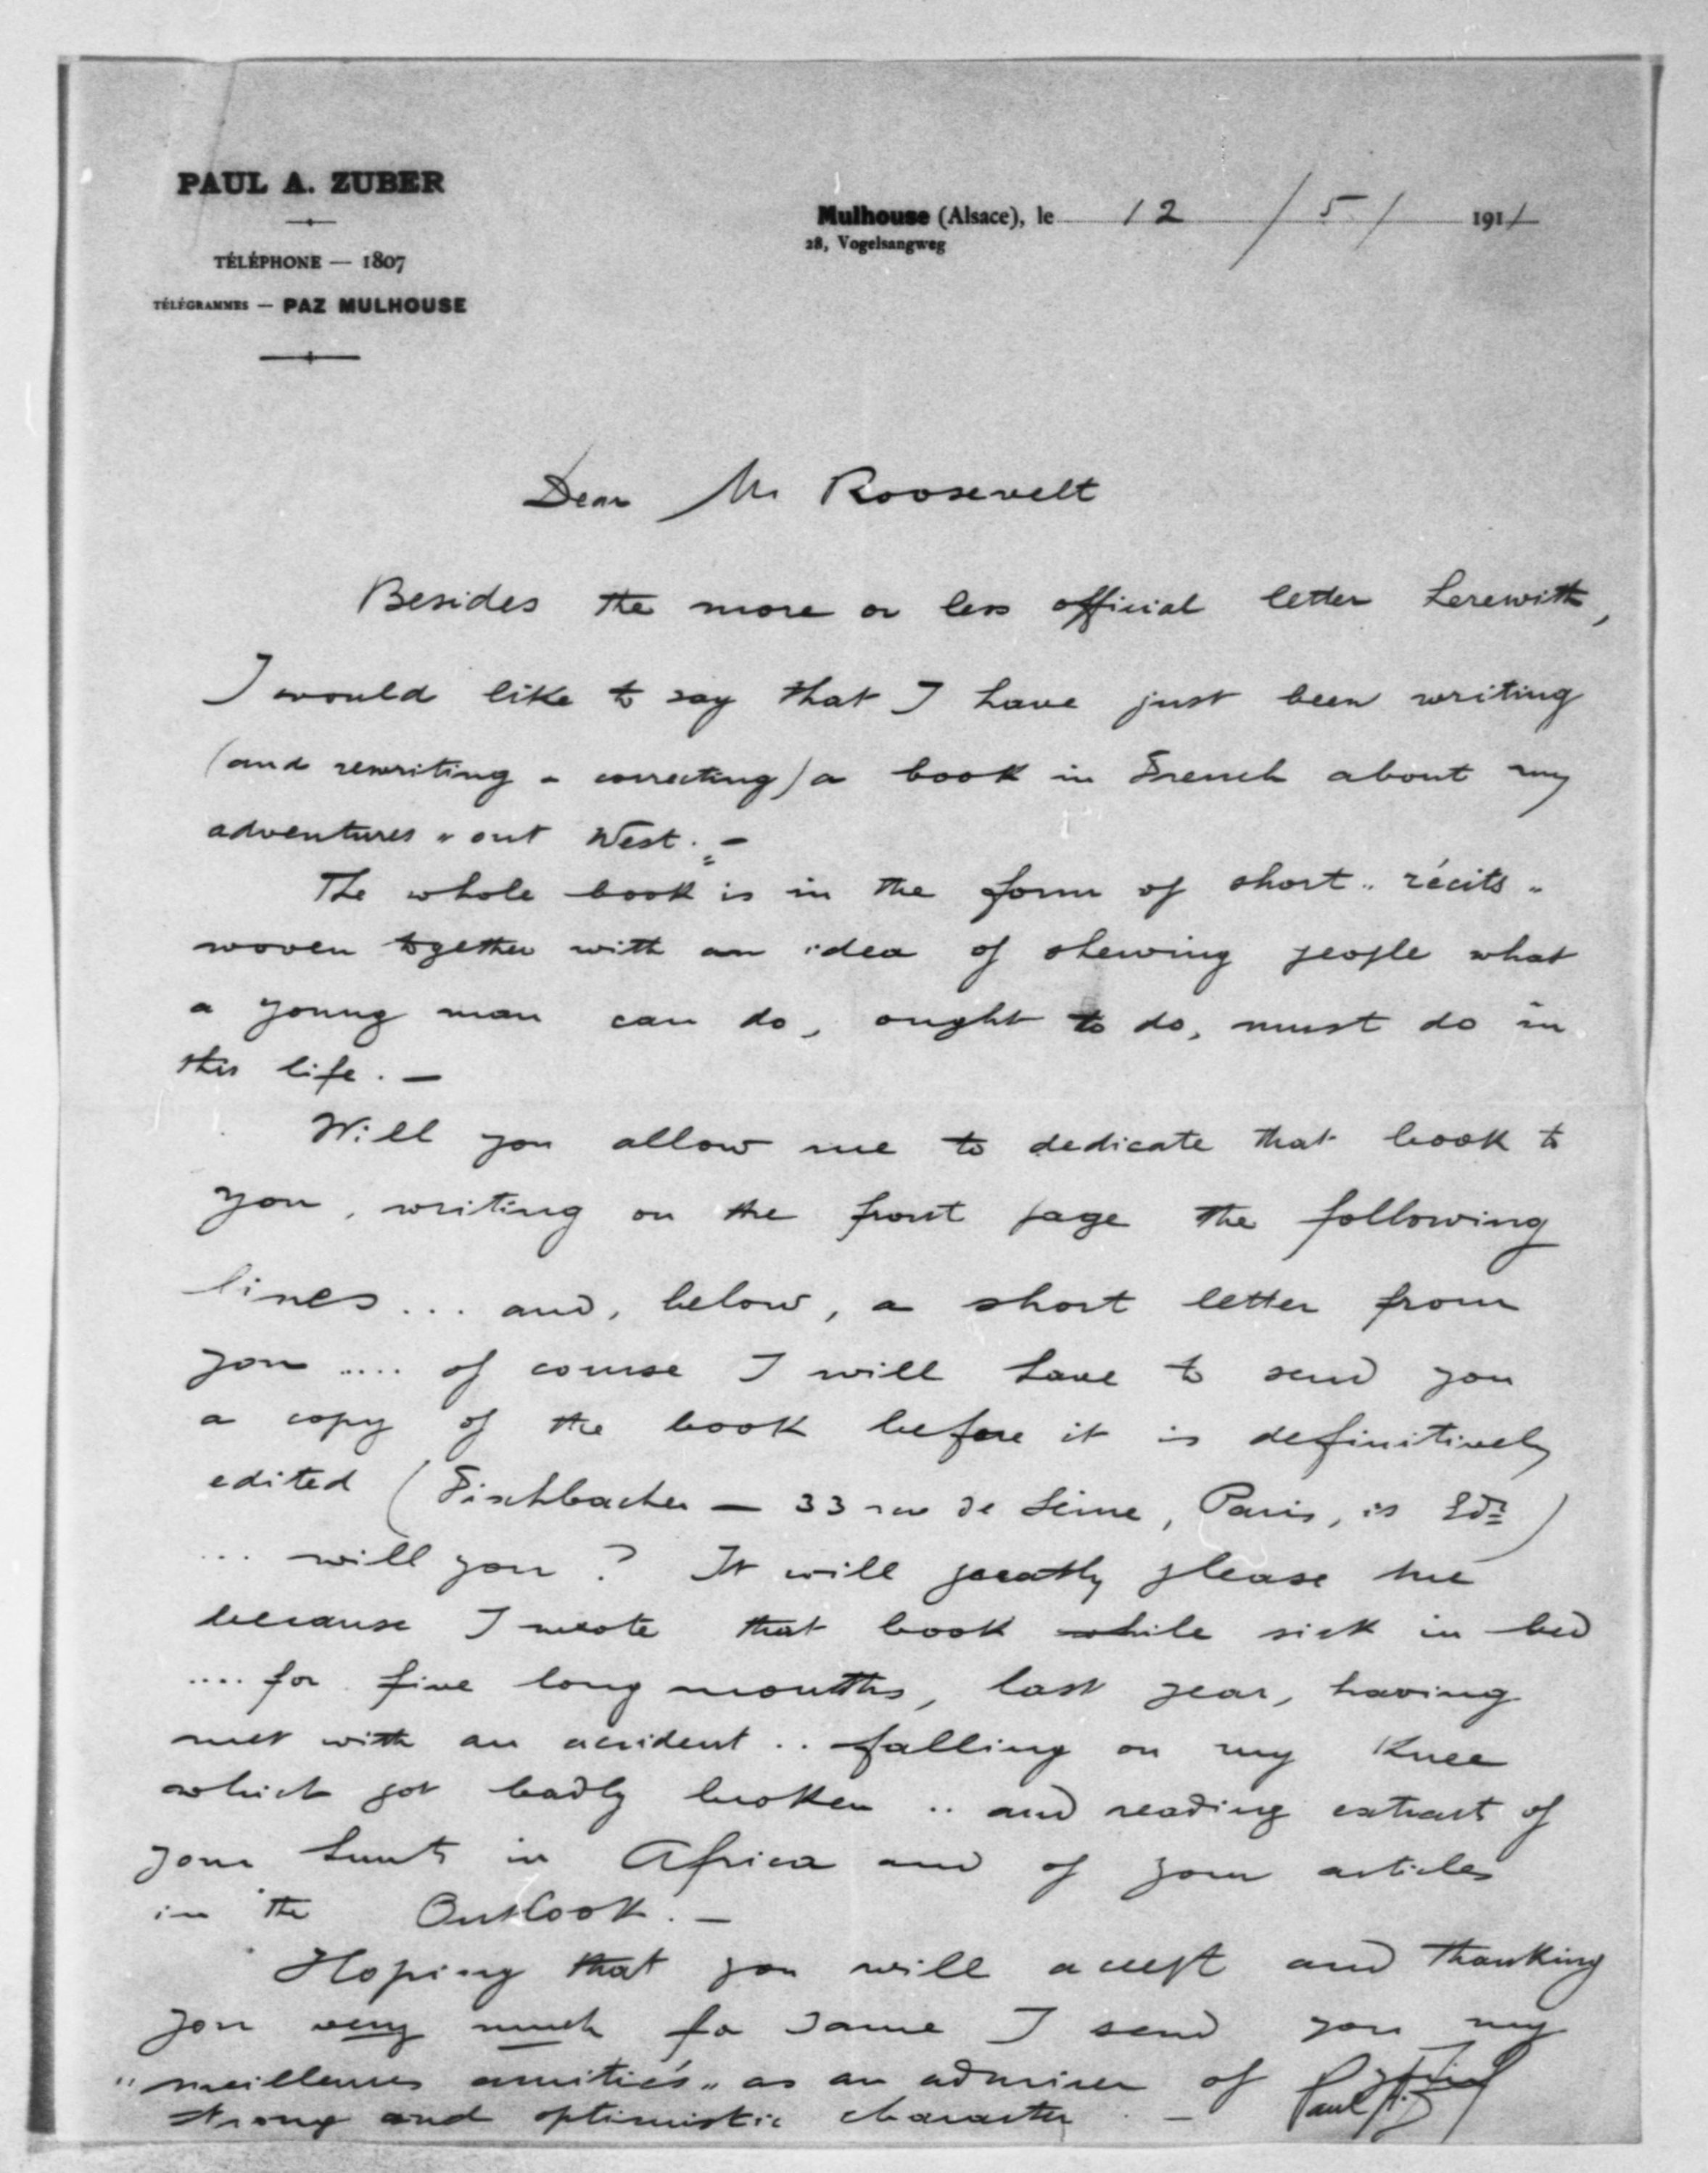 PAUL A. ZUBER
TÉLÉPHONE — 1807
TÉLÉGRAMMES — PAZ MULHOUSE
Mulhouse (Alsace), le 12 / 5 / 1911
28, Vogelsangweg
Dear Mr Roosevelt
Besides the more or less official letter herewith,
I would like to say that I have just been writing
(and rewriting - correcting) a book in French about my
adventures "out West." -
The whole book is in the form of short "récits"
woven together with an idea of shewing people what
a young man can do, ought to do, must do in
this life. —
Will you allow me to dedicate that book to
you, writing on the front page the following
lines... and, below, a short letter from
you .... of course I will have to send you
a copy of the book before it is definitively
edited (Fischbacher — 33 rue de Seine, Paris, is Edr)
... will you? It will greatly please me
because I wrote that book while sick in bed
.... for five long months, last year, having
met with an accident .. falling on my Knee
which got badly broken .. and reading extract of
your hunts in Africa and of your articles
in the Outlook. —
Hoping that you will accept and thanking
you very much for same I send you my
"meilleures amitiés" as an admirer of
strong and optimistic character. —
Paul A. Z